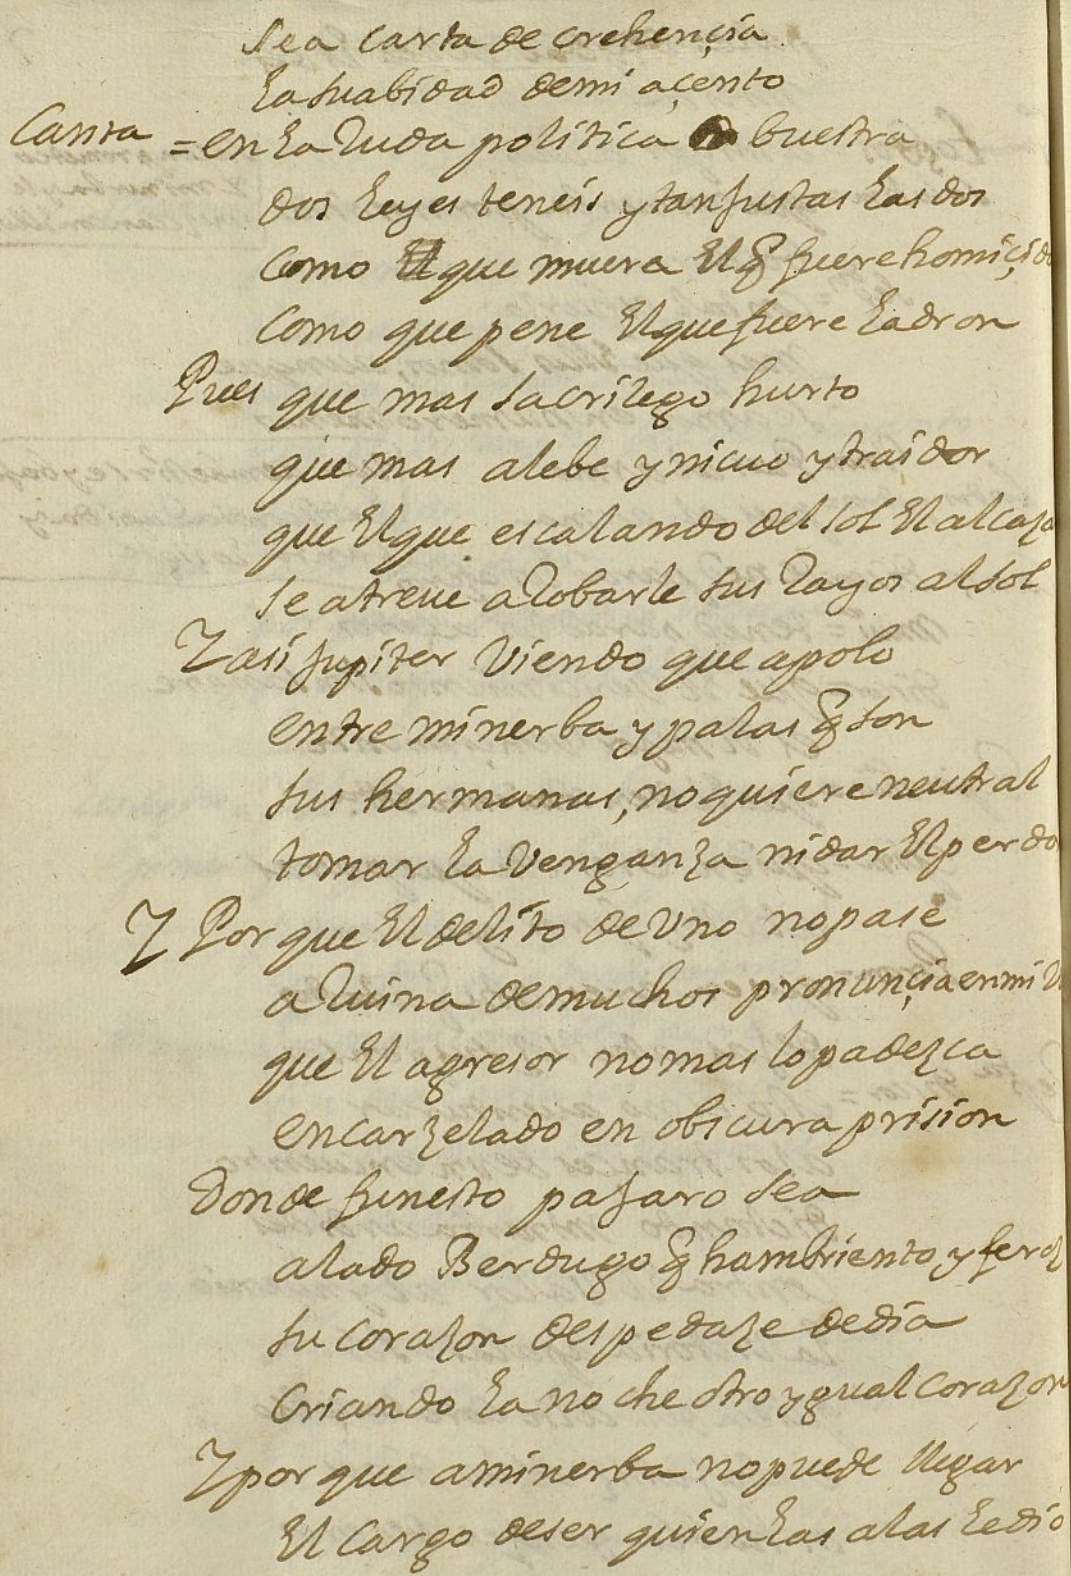 sea carta de crehençia
la suabidad de mi açento
Canta = en la ruda politica buestra
dos leyes teneis y tan justas las dos
como que muera El q fuere homiçid
como que pene El que fuere ladron
Pues que mas sacrilego hurto
que mas alebe ynicuo y traidor
que El que escalando del sol El alcaza
se atreue a robarle sus rayos al sol
Y asi jupiter viendo que apolo
entre minerba y palas q son
sus hermanas, no quiere neutral
tomar la venganza ni dar El perdo
Y Por que El delito de uno no pase
a ruina de muchos pronunçia en mi
que El agresor no mas lo padezca
encarzelado en obscura prision
donde funesto pajaro sea
alado Berdugo q hambriento y feroz
su corazon despedaze de dia
criando la noche otro ygual corazon
Y por que a minerba no puede llegar
El cargo de ser quien las alas le dio